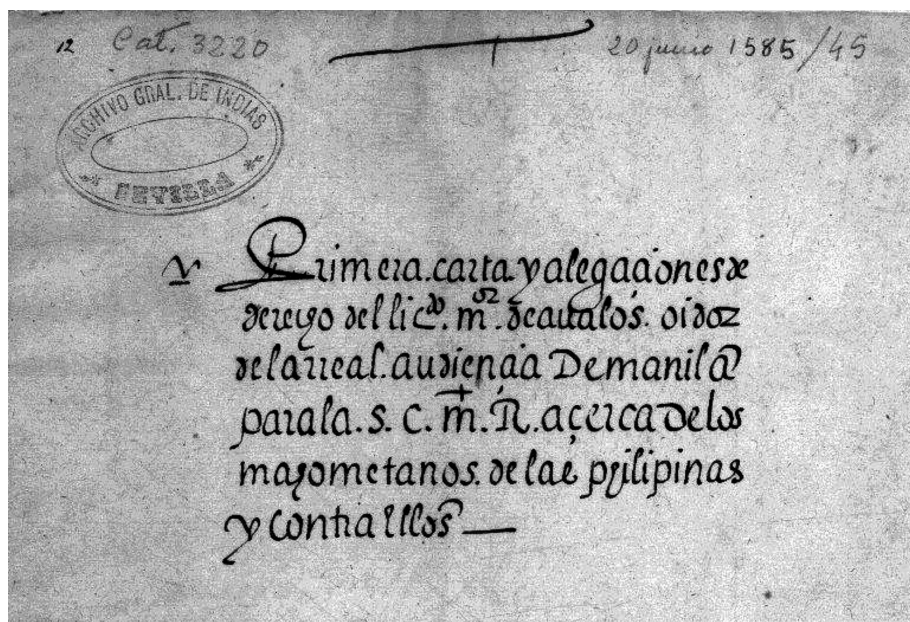 12 Cat. 3220
20 junio 1585/45
ARCHIVO GRAL. DE INDIAS
SEVILLA
Primera. carta. y alegaçiones de
derecho del licdo. mor. de aualos. oidor
de la rreal. audiençia De manila
para la. s. c. m. R. açerca de los
mahometanos. de las philipinas
y contra ellos —